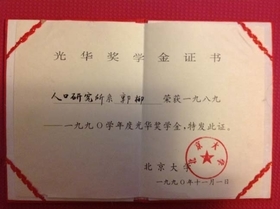 光华奖学金证书
人口研究所系郭柳 荣获一九八九
—一九九〇学年度光华奖学金,特发此证。
北京大学
一九九〇年十一月一日